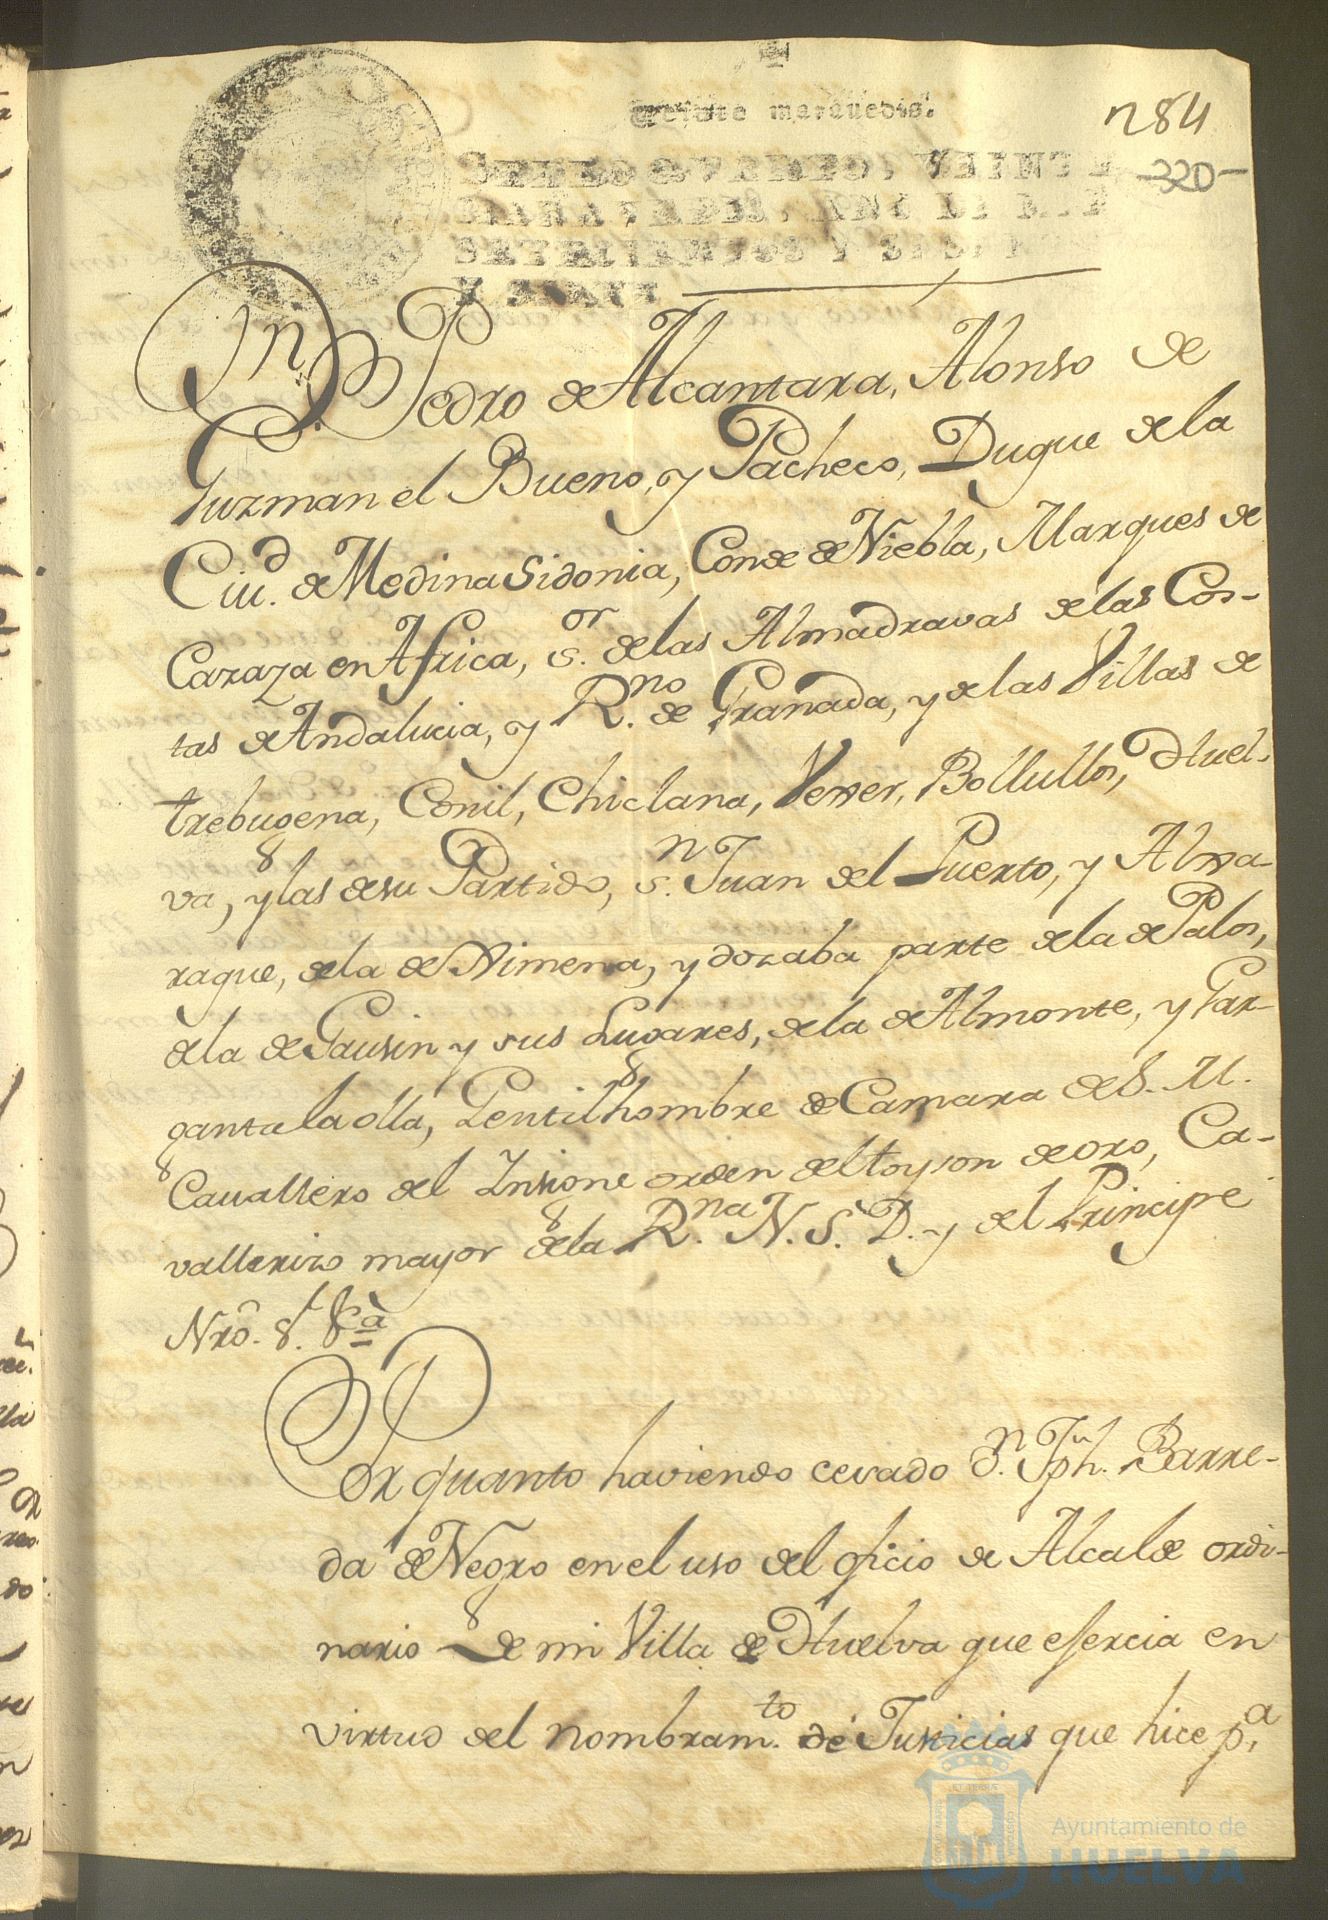 Veinte maravedis.
n284
-320-
SELLO QVARTO, VEINTE
MARAVEDIS, AÑO DE MIL
SETECIENTOS Y SESENTA
Y NUEVE
Dn. Pedro de Alcantara, Alonso de
Guzman el Bueno, y Pacheco, Duque de la
Ciud. de Medina Sidonia, Conde de Niebla, Marques de
Cazaza en Africa, sor. de las Almadravas de las Cos-
tas de Andalucia, y Rno. de Granada, y de las Villas de
trebugena, Conil, Chiclana, Vexer, Bollullos, Huel-
va, y las de su Partido, sn. Juan del Puerto, y Alxa-
raque, de la de Ximena, y dozaba parte de la de Palos,
de la de Gausin y sus Lugares, de la de Almonte, y Gar-
ganta la olla, Gentilhombre de Camara de S. M.
Cavallero del Insigne orden del toyson de oro, Ca-
vallerizo mayor de la Rna. N. S. D. y del Principe
Nrô.
Por quanto haviendo cesado Dn. Jph. Barre-
da de Negro en el uso del oficio de Alcalde ordi-
nario de mi Villa de Huelva que esercia en
virtud del nombramto. de Justicias que hice pa.
Ayuntamiento de
HUELVA